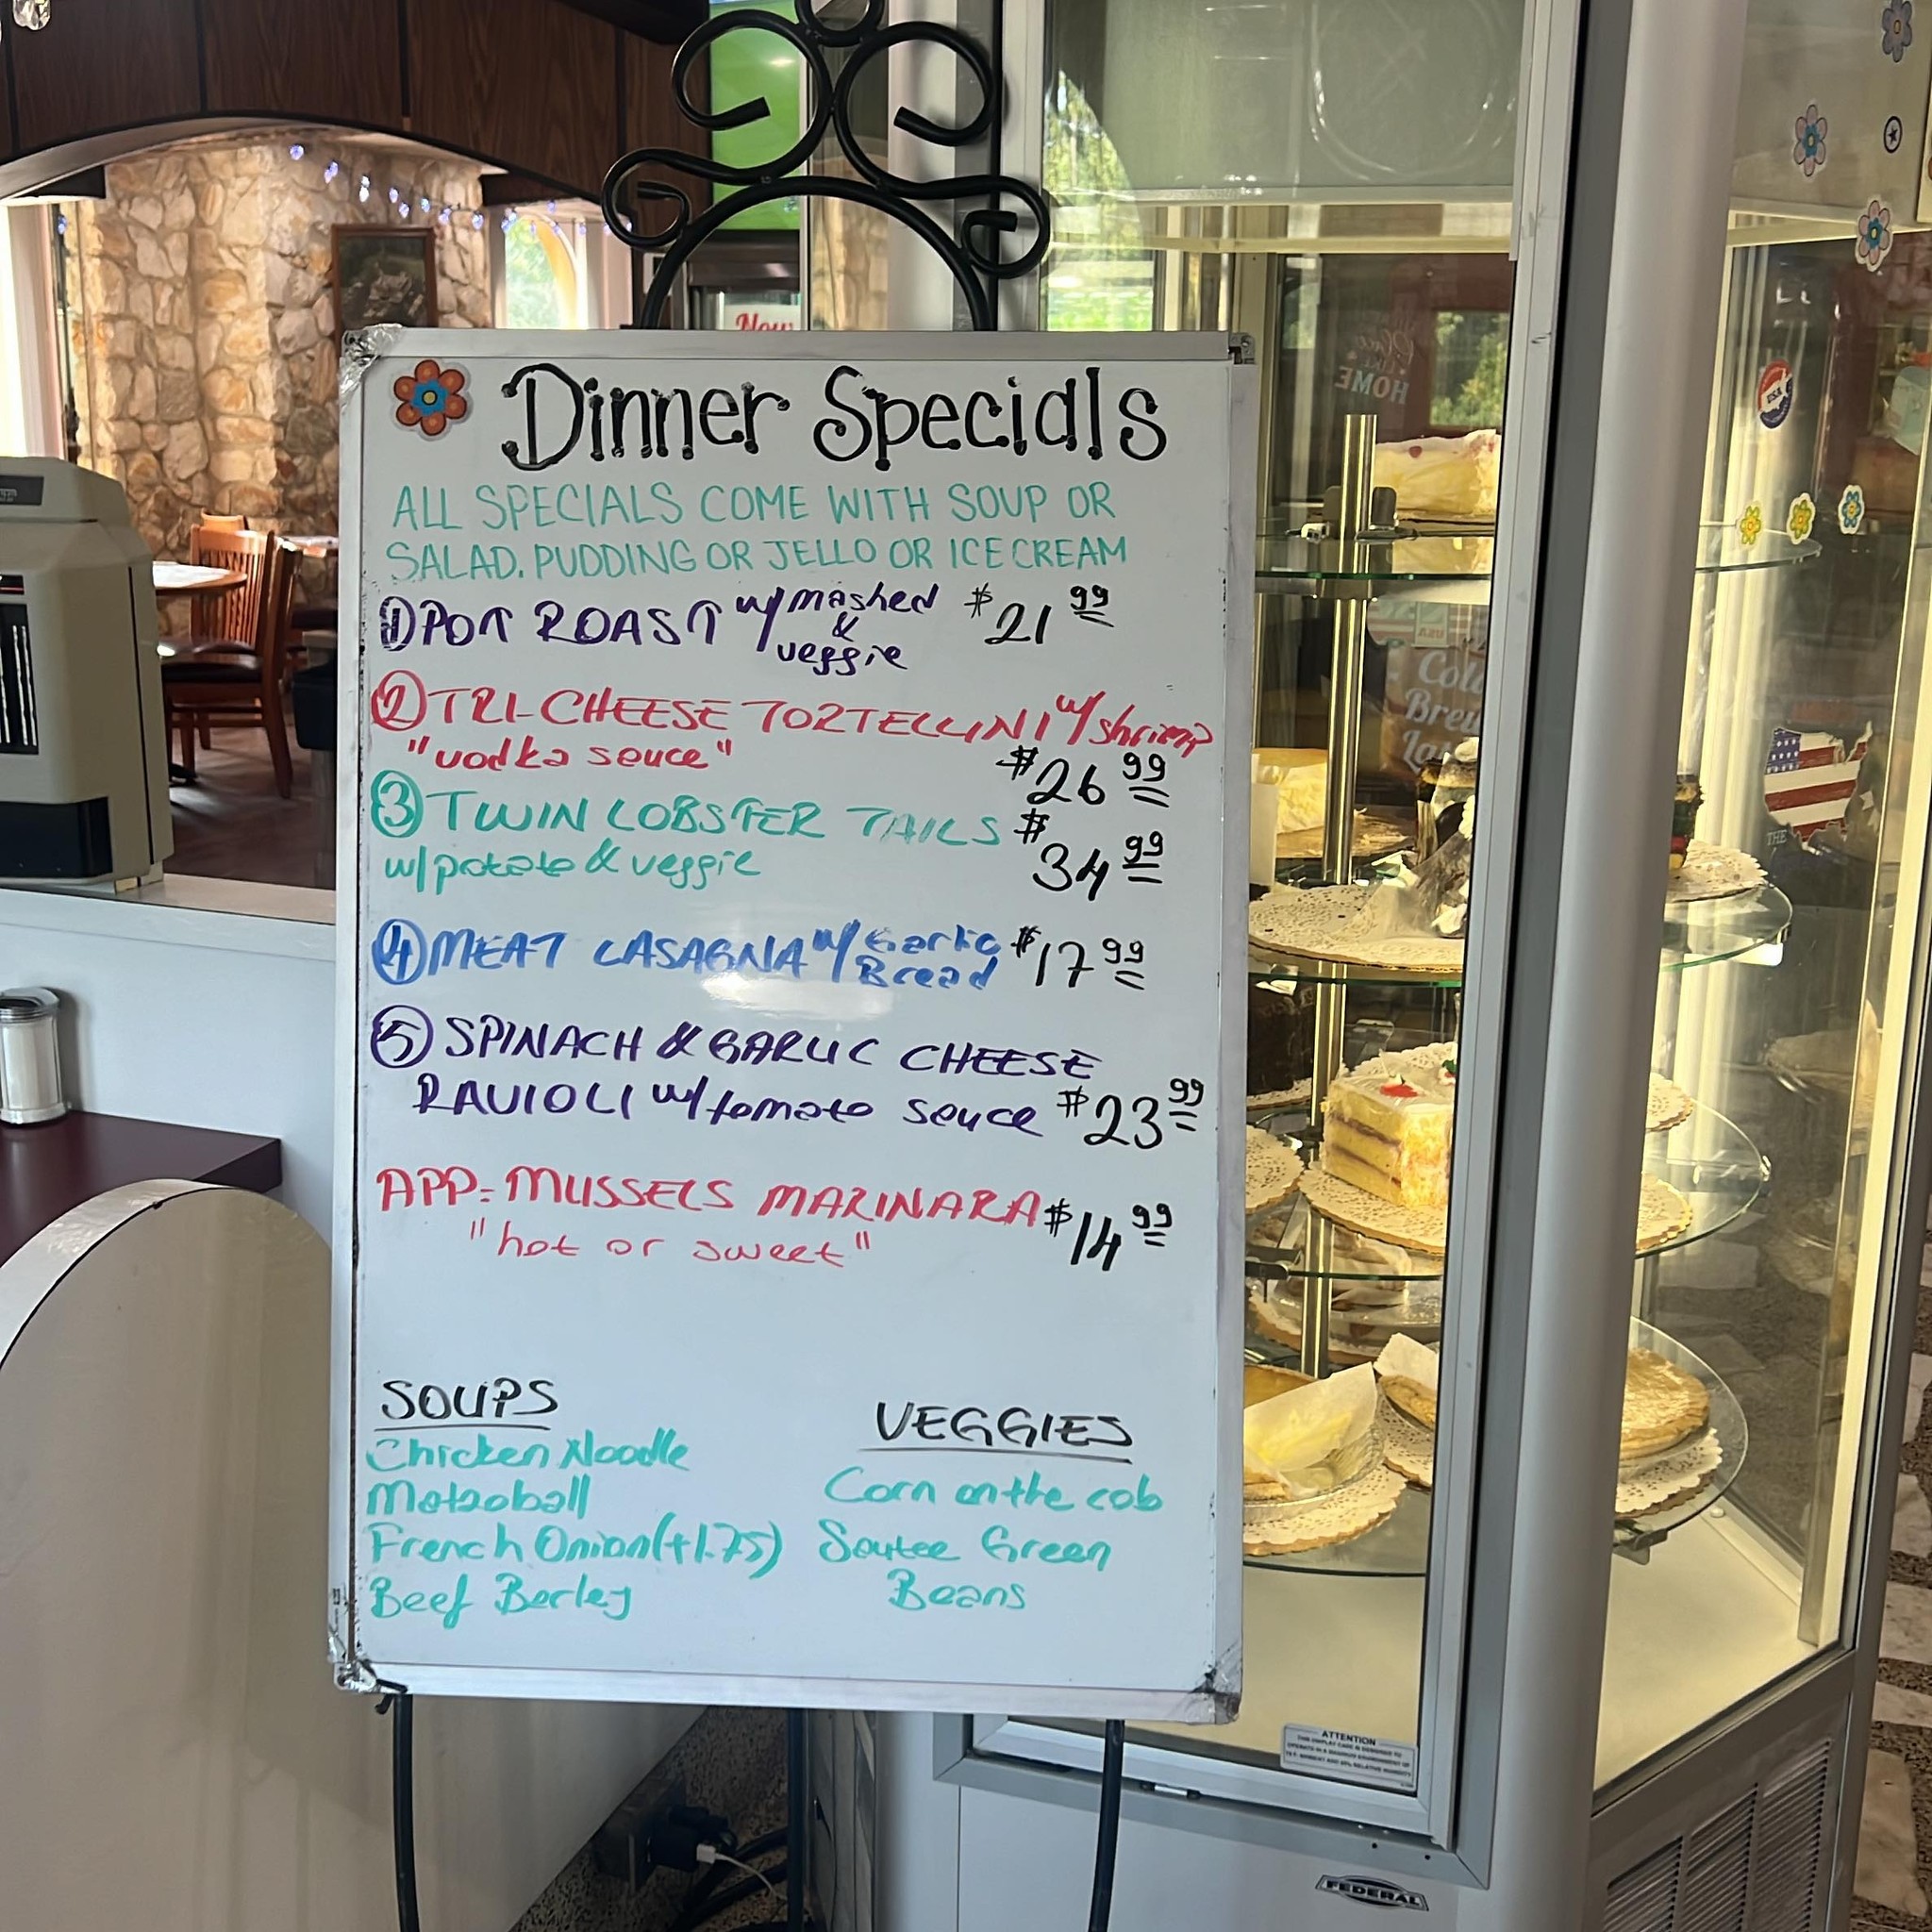 Dinner Specials
ALL SPECIALS COME WITH SOUP OR
SALAD. PUDDING OR JELLO OR ICE CREAM
① POT ROAST w/ mashed & veggie $21 99
② TRI-CHEESE TORTELLINI w/ shrimp
"vodka sauce" $26 99
③ TWIN LOBSTER TAILS $34 99
w/ potato & veggie
④ MEAT LASAGNA w/ Garlic Bread $17 99
⑤ SPINACH & GARLIC CHEESE
RAVIOLI w/ tomato sauce $23 99
APP: MUSSELS MARINARA $14 99
"hot or sweet"
SOUPS
Chicken Noodle
Matzoball
French Onion (+1.75)
Beef Barley
VEGGIES
Corn on the cob
Sautee Green
Beans
Now
Place
Like
HOME
USA
Cold
Brew
THE
ATTENTION
THIS DISPLAY CASE IS DESIGNED TO
FEDERAL